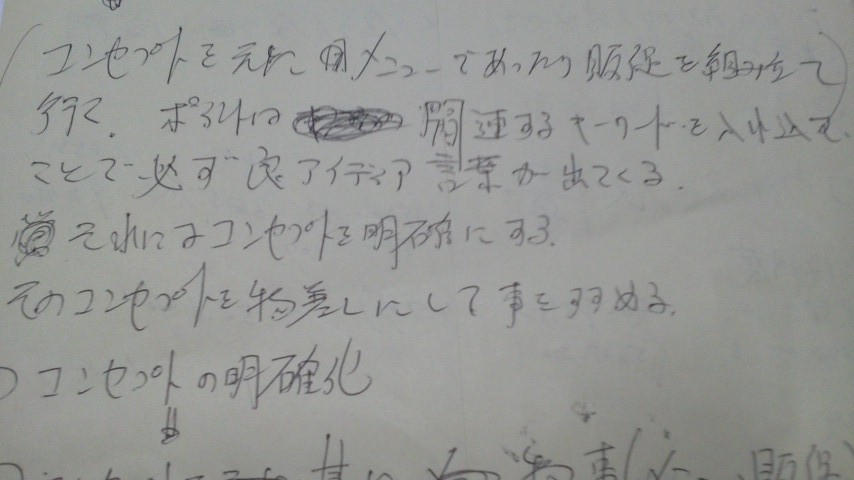 (コンセプトを元に 用メニューであったり販促を組み立て)
行く。ポイントは 関連するキーワードを入れ込む
ことで必ず良アイディア言葉が出てくる。
それにはコンセプトを明確にする。
そのコンセプトを物差しにして事をすすめる。
) コンセプトの明確化